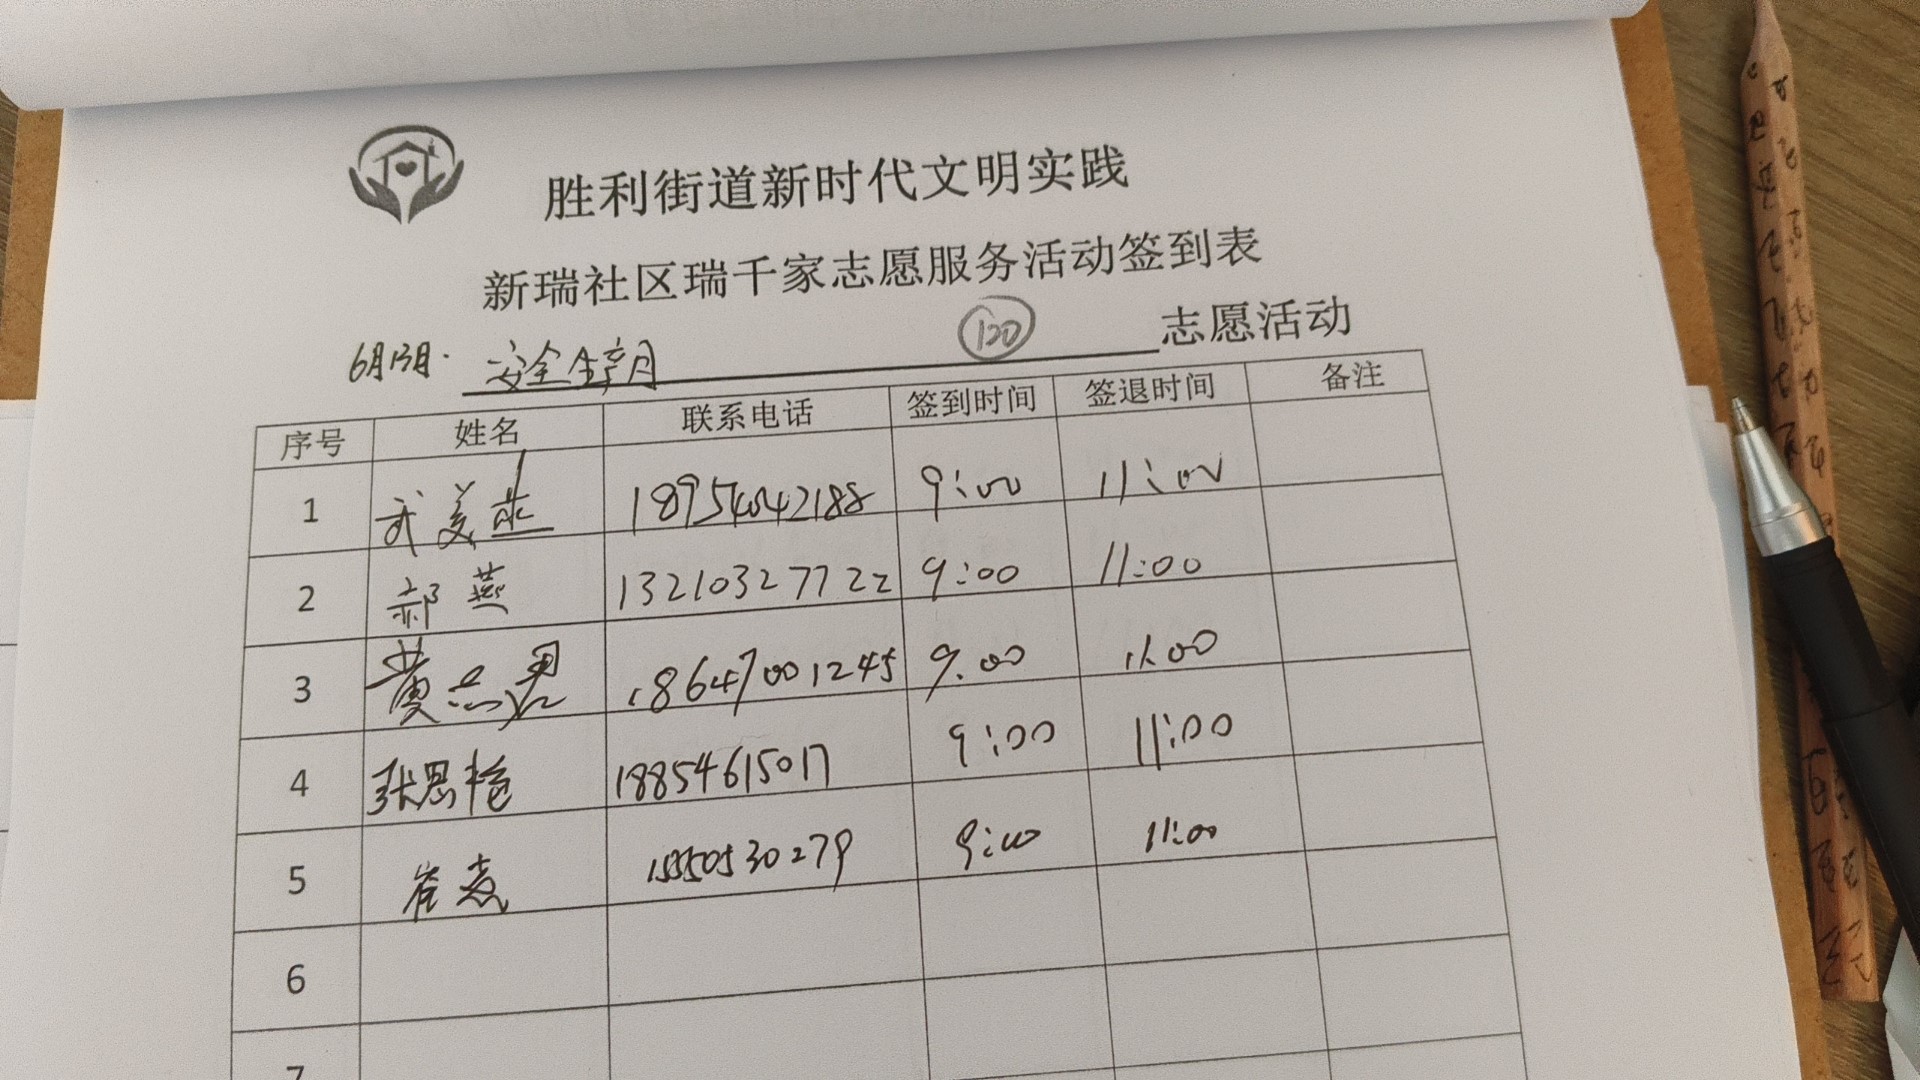 胜利街道新时代文明实践
新瑞社区瑞千家志愿服务活动签到表
6月13日. 安全生产月 120 志愿活动
序号 姓名 联系电话 签到时间 签退时间 备注
1 武美燕 18954042188 9:00 11:00
2 郝燕 13210327722 9:00 11:00
3 黄志君 18647001245 9.00 11.00
4 张思艳 18854615017 9:00 11:00
5 崔燕 15550530279 9:00 11:00
6
7